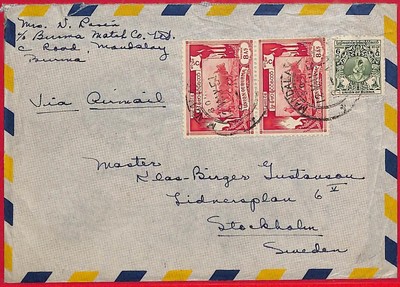 Mrs. N. Persin
c/o Burma Match Co. Ltd.
C Road, Mandalay
Burma
Via Airmail
8 AS
8 AS
MANDALAY
Master
Klas-Birger Gustavson
Lidnersplan 6 V
Stockholm
Sweden